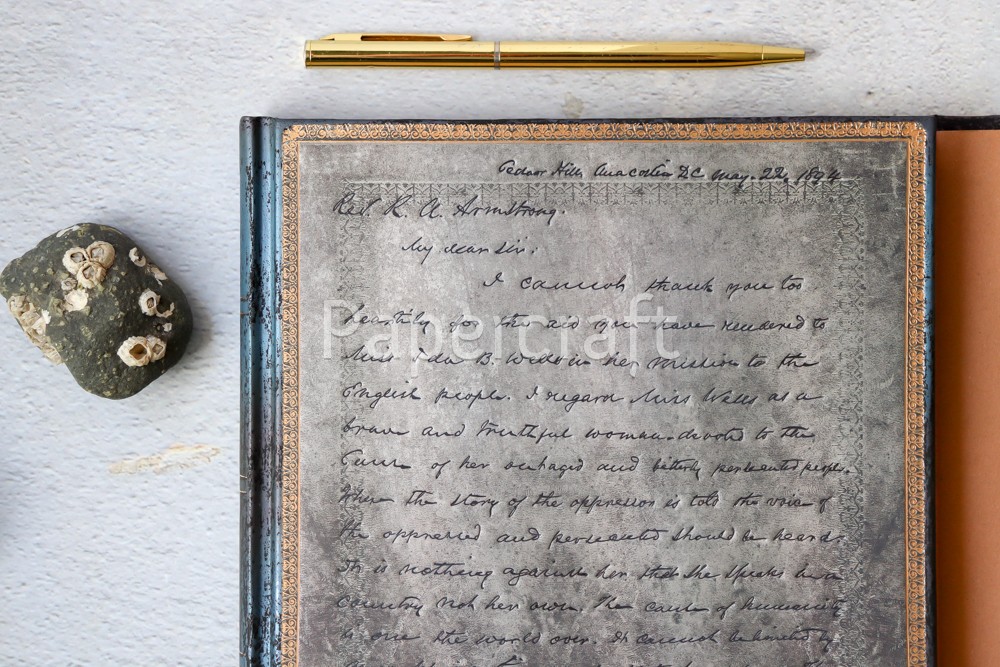 Cedar Hill, Anacostia DC. May. 22. 1894
Rev. R. A. Armstrong.
My dear Sir:
I cannot thank you too
heartily for the aid you have rendered to
Papercraft
Miss Ida B. Wells in her mission to the
English people. I regard Miss Wells as a
brave and truthful woman devoted to the
Cause of her outraged and bitterly persecuted people.
Where the story of the oppressor is told the voice of
the oppressed and persecuted should be heard.
It is nothing against her that she speaks in a
country not her own. The cause of humanity
is one the world over. It cannot be limited by